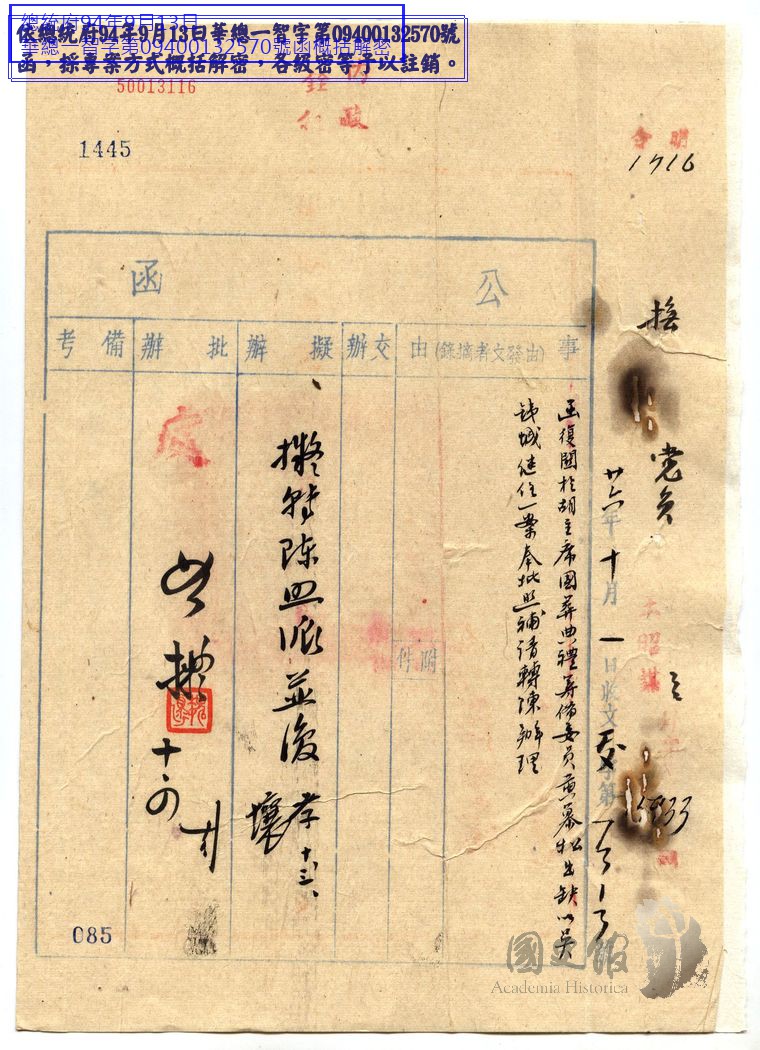 總統府94年9月13日
華總一智字第09400132570號函概括解密
依總統府94年9月13日華總一智字第09400132570號
函，採專案方式概括解密，各級密等予以註銷。
50013116
1445
1716
公函
事由(由發文者摘錄)
交辦
擬辦
批辦
備考
附件
廿六年十月一日收文
字第
函復關於胡主席國葬典禮籌備委員黃慕松出缺以吳
鐵城繼任一案奉批照補請轉陳辦理
擬轉陳照派並復
十、三、
如擬
十、四
085
國史館
Academia Historica